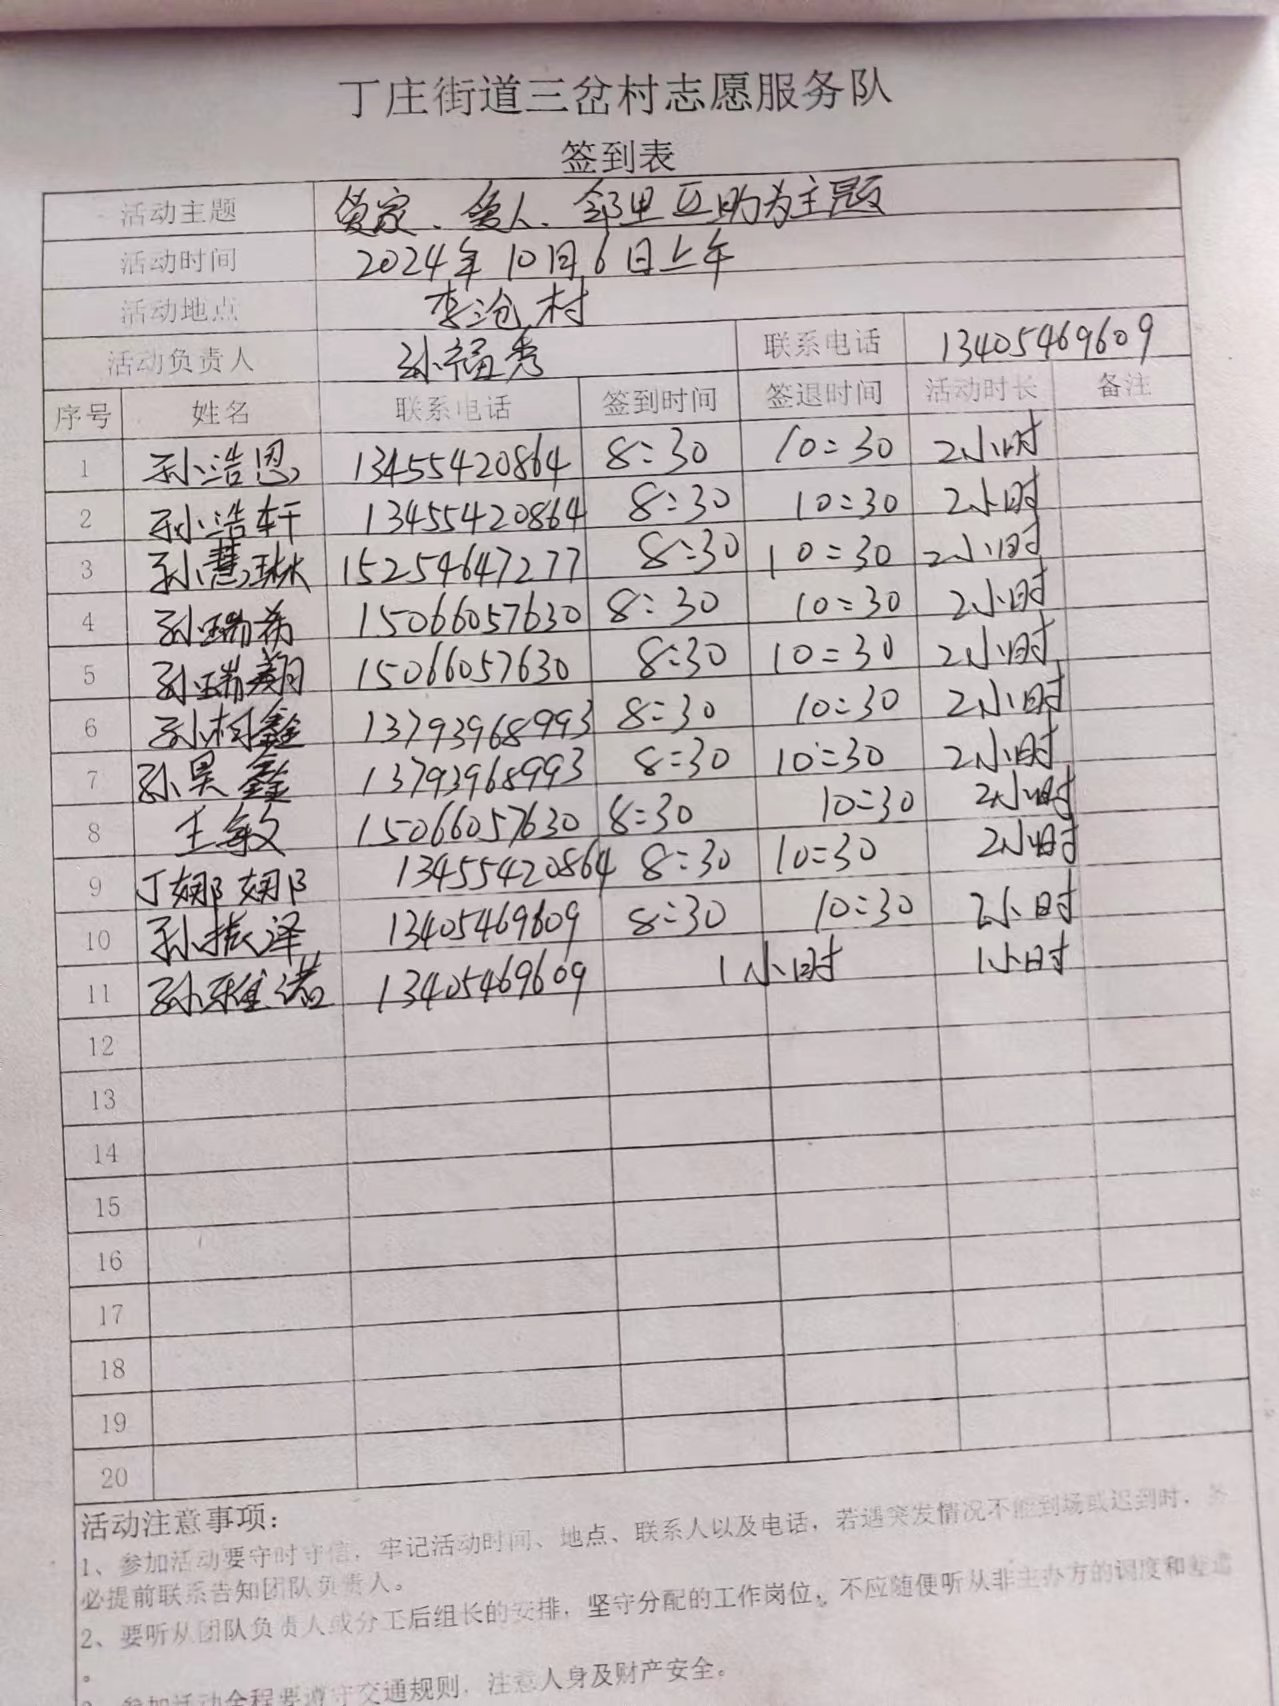 丁庄街道三岔村志愿服务队
签到表
活动主题 爱家、爱人、邻里互助为主题
活动时间 2024年10月6日上午
活动地点 李沧村
活动负责人 孙福秀 联系电话 13405469609
序号 姓名 联系电话 签到时间 签退时间 活动时长 备注
1 孙浩恩 13455420864 8:30 10:30 2小时
2 孙浩轩 13455420864 8:30 10:30 2小时
3 孙慧琳 15254647277 8:30 10:30 2小时
4 孙瑞希 15066057630 8:30 10:30 2小时
5 孙瑞翔 15066057630 8:30 10:30 2小时
6 孙梓鑫 13793968993 8:30 10:30 2小时
7 孙昊鑫 13793968993 8:30 10:30 2小时
8 王敏 15066057630 8:30 10:30 2小时
9 丁娜娜 13455420864 8:30 10:30 2小时
10 孙振泽 13405469609 8:30 10:30 2小时
11 孙雅诺 13405469609 1小时 1小时
12
13
14
15
16
17
18
19
20
活动注意事项：
1、参加活动要守时守信，牢记活动时间、地点、联系人以及电话，若遇突发情况不能到场或迟到时，务
必提前联系告知团队负责人。
2、要听从团队负责人或分工后组长的安排，坚守分配的工作岗位，不应随便听从非主办方的调度和差遣
。
3、参加活动全程要遵守交通规则，注意人身及财产安全。